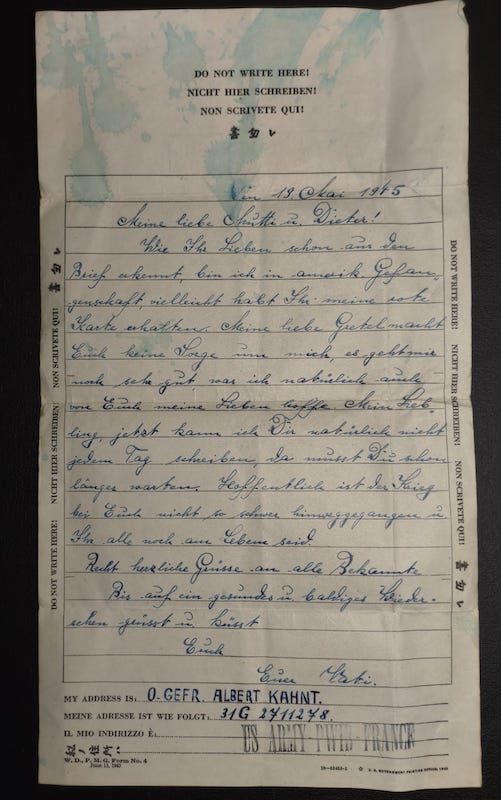 DO NOT WRITE HERE!
NICHT HIER SCHREIBEN!
NON SCRIVETE QUI!
書勿レ
19 Mai 1945
Meine liebe Mutti u. Dieter!
Wie Ihr Lieben schon aus den
Brief erkennt, bin ich in amerik Gefan-
genschaft vielleicht habt Ihr meine rote
Karte erhalten. Meine liebe Gretel macht
Euch keine Sorge um mich, es geht mir
noch sehr gut, was ich natürlich auch
von Euch meine Lieben hoffe. Mein Lieb-
ling, jetzt kann ich Dir natürlich nicht
jedem Tag schreiben, da musst Du schon
länger warten. Hoffentlich ist der Krieg
bei Euch nicht so schwer hinweggegangen u
Ihr alle noch am Leben seid.
Recht herzliche Grüsse an alle Bekannte
Bis auf ein gesundes u. baldiges Wieder-
sehen grüsst u. küsst
Euch
Euer Vati.
MY ADDRESS IS: O. GEFR. ALBERT KAHNT.
MEINE ADRESSE IST WIE FOLGT: 31G 2711278.
IL MIO INDIRIZZO È:
US ARMY PWIB FRANCE
W. D., P. M. G. Form No. 4
June 13, 1943
☆ U. S. GOVERNMENT PRINTING OFFICE, 1943
DO NOT WRITE HERE! NICHT HIER SCHREIBEN! NON SCRIVETE QUI! 書勿レ
DO NOT WRITE HERE! NICHT HIER SCHREIBEN! NON SCRIVETE QUI! 書勿レ